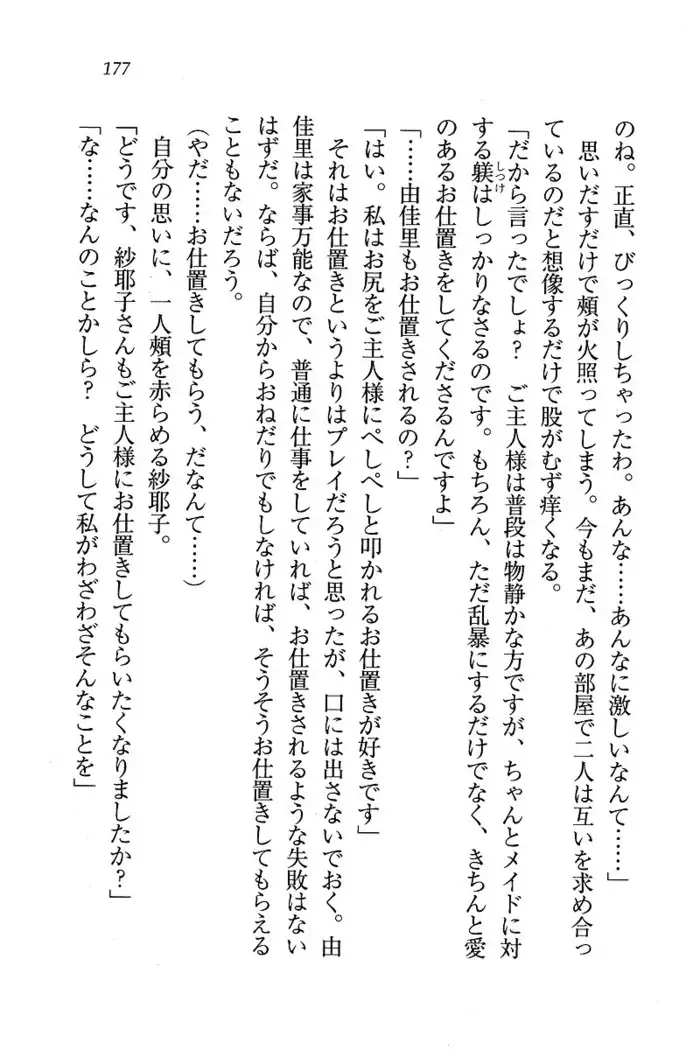 177
のね。正直、びっくりしちゃったわ。あんな……あんなに激しいなんて……」
思いだすだけで頰が火照ってしまう。今もまだ、あの部屋で二人は互いを求め合っ
ているのだと想像するだけで股がむず痒くなる。
「だから言ったでしょ?　ご主人様は普段は物静かな方ですが、ちゃんとメイドに対
する躾はしっかりなさるのです。もちろん、ただ乱暴にするだけでなく、きちんと愛
しつけ
のあるお仕置きをしてくださるんですよ」
「……由佳里もお仕置きされるの?」
「はい。私はお尻をご主人様にぺしぺしと叩かれるお仕置きが好きです」
それはお仕置きというよりはプレイだろうと思ったが、口には出さないでおく。由
佳里は家事万能なので、普通に仕事をしていれば、お仕置きされるような失敗はない
はずだ。ならば、自分からおねだりでもしなければ、そうそうお仕置きしてもらえる
こともないだろう。
(やだ……お仕置きしてもらう、だなんて……)
自分の思いに、一人頰を赤らめる紗耶子。
「どうです、紗耶子さんもご主人様にお仕置きしてもらいたくなりましたか?」
「な……なんのことかしら?　どうして私がわざわざそんなことを」